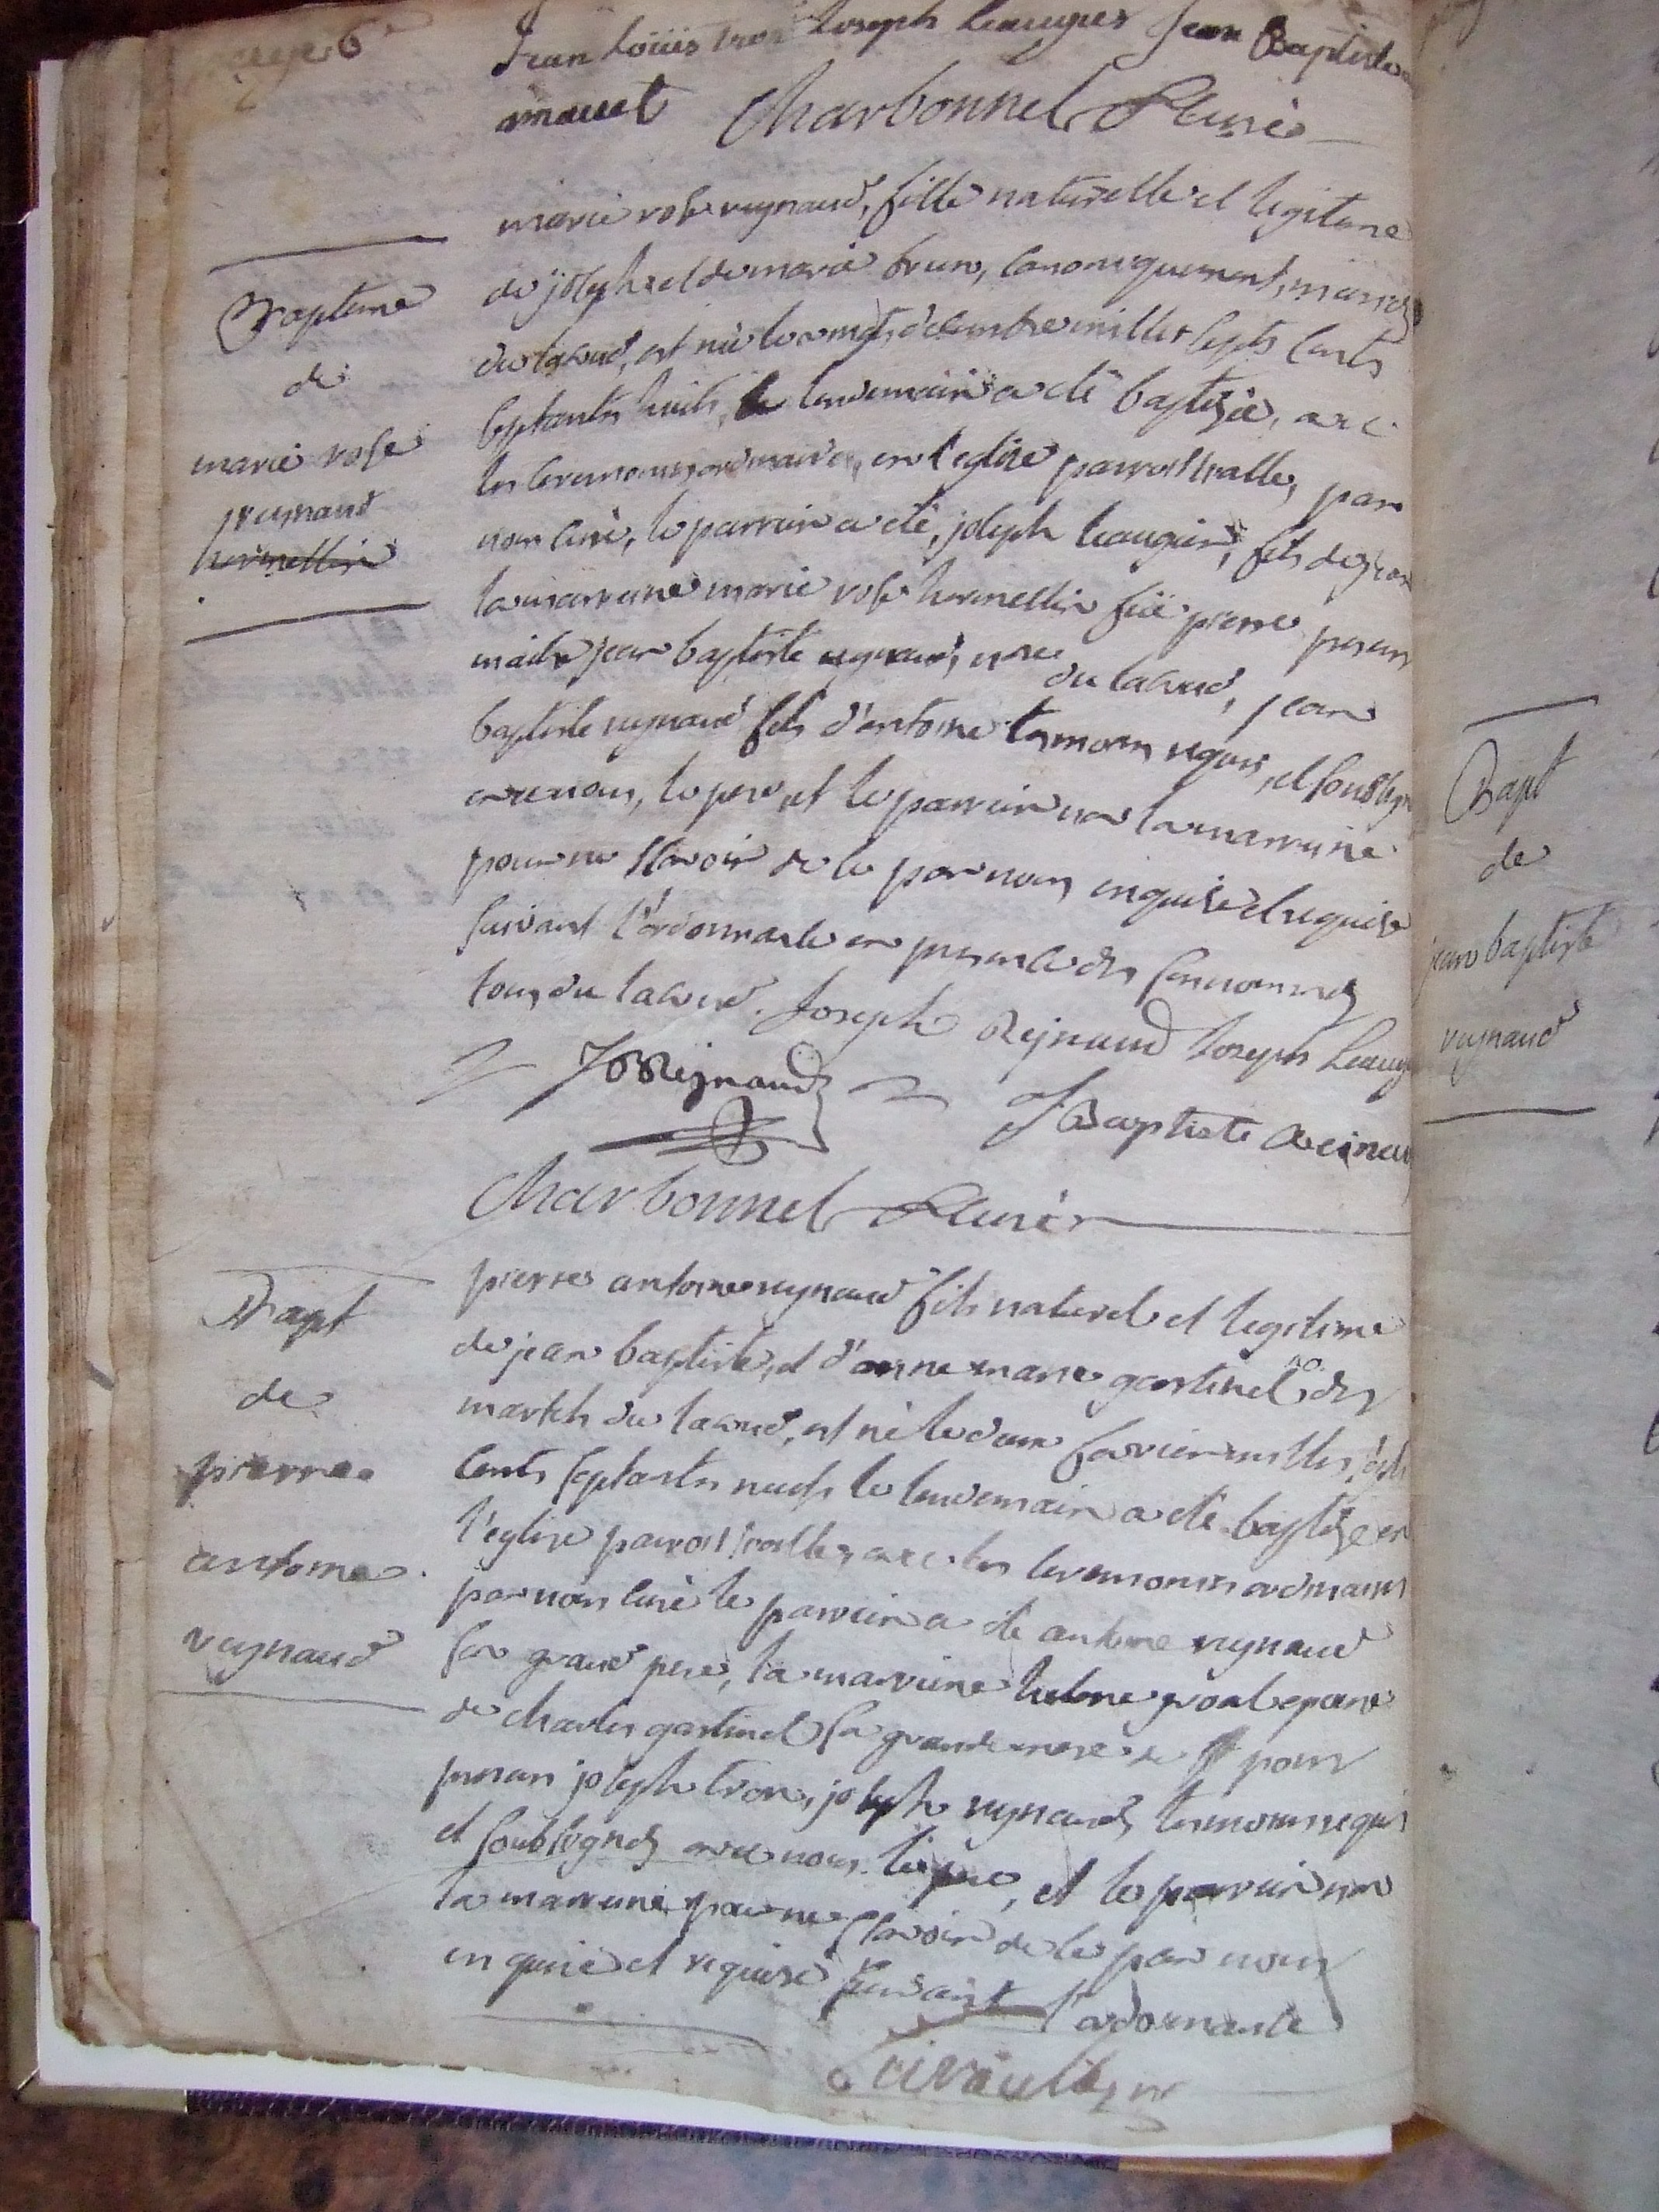 page 6
Jean Louiis tron Joseph Leaugier Jean Baptiste
manuel Charbonnel Curé
Bapteme
de
marie rose
reynaud
hermellin
marie rose reynaud, fille naturelle et legitime
de joseph et de marie brun, canoniquement mariés
du lacud, est née le vingt decembre mille septs cents
septante huit, le lendemain a eté baptisée, avec
les ceremonies ordinaires, en l'eglise parroissialle, par
nous curé, le parrain a eté, joseph leaugier, fils de jean
la marraine marie rose hermellin feü pierre presens
maitre jean baptiste reynaud, du lacud, jean
baptiste reynaud fils d'antoine temoins requis, et soussignés
avec nous, le pere et le parrain non la marraine
pour ne sçavoir de ce par nous enquise et requise
suivant l'ordonnance en presence des susnommés
tous du lacud. Joseph Rejnaud Joseph Leaugier
JB Rejnaud J Baptiste Reinau
Charbonnel Curé
Bapt
de
pierre
antoine
reynaud
pierre antoine reynaud fils naturel et legitime
de jean baptiste, et d'anne marie gastinel des
mariés du lacud, est né le deux fevrier milles septs
cents septantes neufs le lendemain a eté baptisé en
l'eglise parroissialle, avec les ceremonies ordinaires
par nous curé le parrain a eté antoine reynaud
son grand pere, la marraine helene epouse
de charles gastinel sa grande mere
presens joseph tron, joseph reynaud, temoins requis
et soussignés avec nous le pere, et le parrain non
la marraine pour ne sçavoir de ce par nous
enquise et requise suivant l'ordonnance
Bapt
de
jean baptiste
reynaud